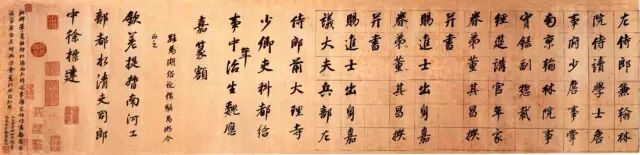 左侍郎兼翰林
院侍讀學士詹
事府少詹事掌
南京翰林院事
實錄副總裁
經筵講官年家
眷弟董其昌撰
并書
眷弟董其昌撰
并書
賜進士出身嘉
議大夫兵部左
侍郎前大理寺
少卿吏科都給
年
事中治生魏應
嘉篆額
欽差提督南河工
部都水清吏司郎
中徐標建